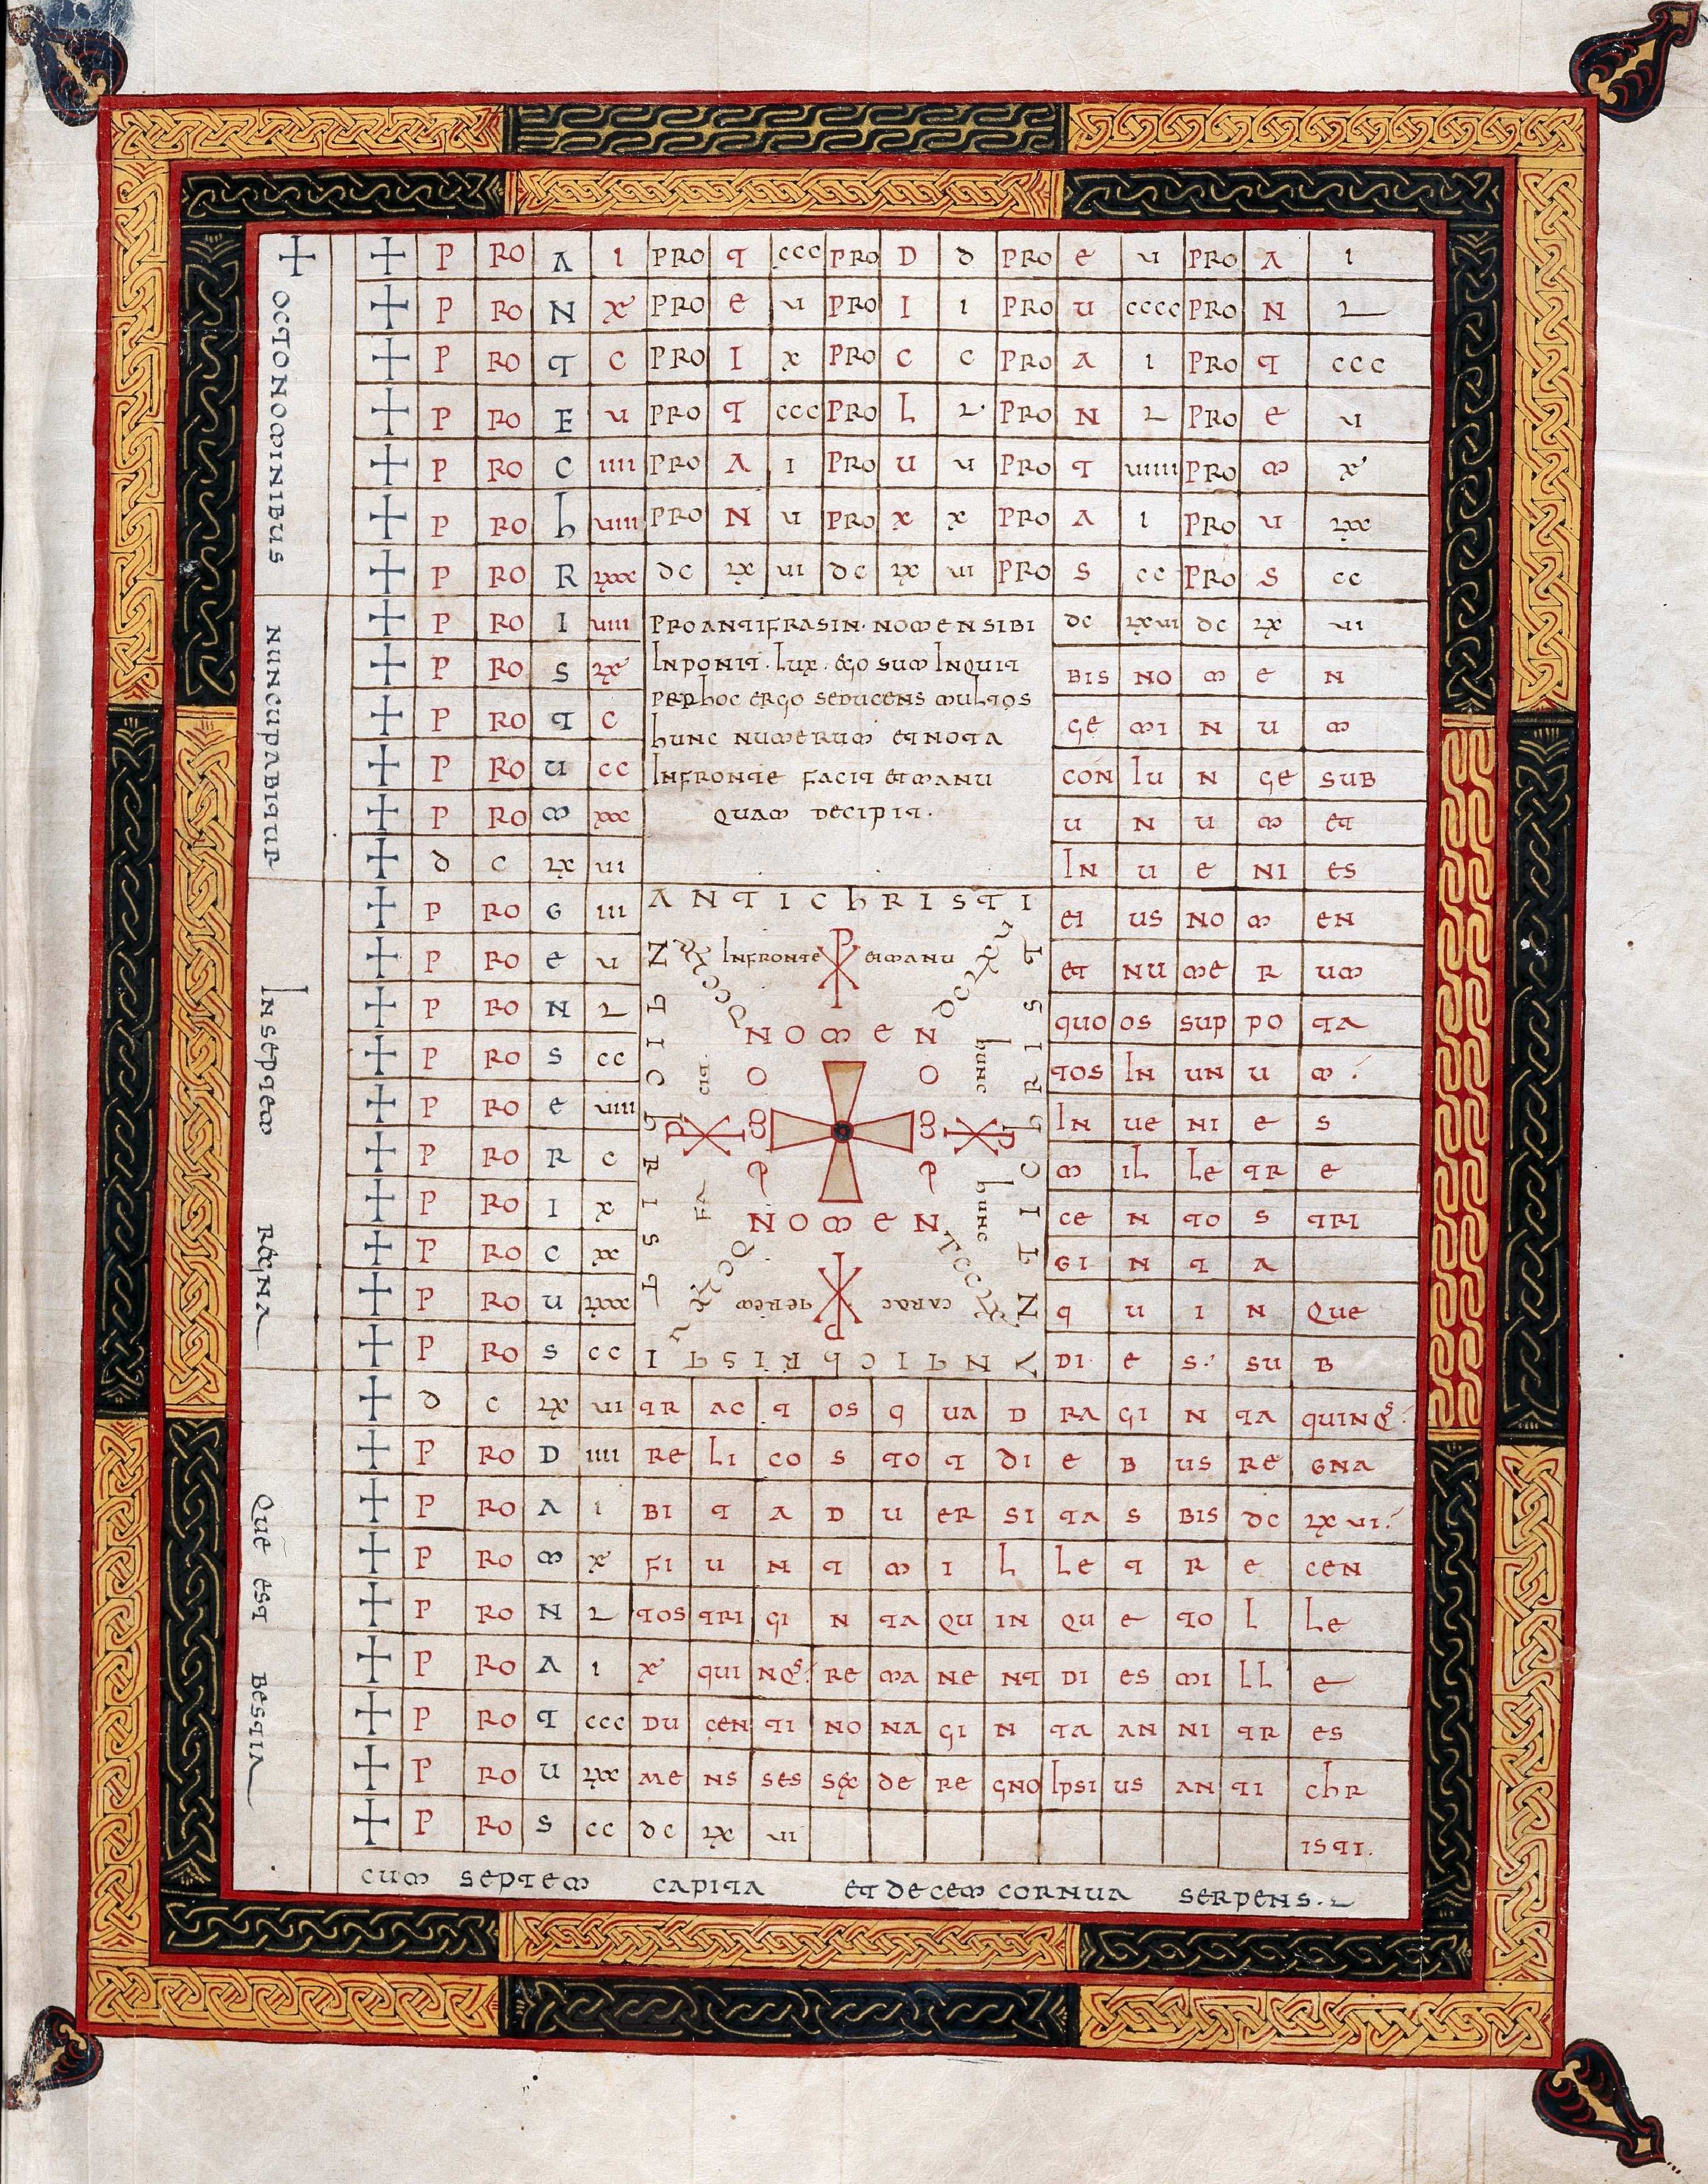 OCTONOMINIBUS NUNCUPABITUR INSEPTEM REGNA QUE EST BESTIA
P RO A I PRO T CCC PRO D D PRO E U PRO A I
P RO N X PRO E U PRO I I PRO U CCCC PRO N L
P RO T C PRO I X PRO C C PRO A I PRO T CCC
P RO E U PRO T CCC PRO L L PRO N L PRO E U
P RO C IIII PRO A I PRO U U PRO T UIIII PRO M X
P RO h UIIII PRO N U PRO X X PRO A I PRO U LXX
P RO R LXXX DC LX UI DC LX UI PRO S CC PRO S CC
P RO I UIIII
P RO S LX
P RO T C
P RO U CC
P RO M XXX
D C LX UI
P RO G III
P RO E U
P RO N L
P RO S CC
P RO E UIIII
P RO R C
P RO I X
P RO C XX
P RO U LXXXX
P RO S CC
PROANTIFRASIN. NOMEN SIBI
INPONIT. LUX. EGO SUM INQUIT
PER HOC ERGO SEDUCENS MULTOS
HUNC NUMERUM ET NOTA
INFRONTE FACIT ET MANU
QUAM DECIPIT.
DC LXUI DC LX UI
BIS NO M E N
GE MI N U M
CON IU N GE SUB
U N U M ET
IN U E NI ES
EI US NO M EN
ET NU ME R UM
QUO OS SUP PO TA
TOS IN UN U M
IN UE NI E S
M IL LE TR E
CE N TO S TRI
GI N T A
Q U I N QUE
DI E S SU B
ANTICHRISTI
ANTICHRISTI
ANTICHRISTI
INFRONTE ET MANU
DCLXUI
NOMEN
HUNC
HUNC
NOMEN
CARAC
TEREM
FA
CIT
D C LX UI TR AC T OS Q UA D RA GI N TA QUINQ
P RO D IIII RE LI CO S TO T DI E B US RE GNA
P RO A I BI T A D U ER SI TA S BIS DC LX UI
P RO M X FI U N T M I L LE T R E CEN
P RO N L TOS TRI GI N TA QU IN QU E TO L LE
P RO A I X QUI NQ RE MA NE NT DI ES MI LL E
P RO T CCC DU CEN TI NO NA GI N TA AN NI TR ES
P RO U LXX ME NS SES SEX DE RE GNO IPSI US AN TI CHR
P RO S CC DC LX UI ISTI.
CUM SEPTEM CAPITA ET DECEM CORNUA SERPENS.